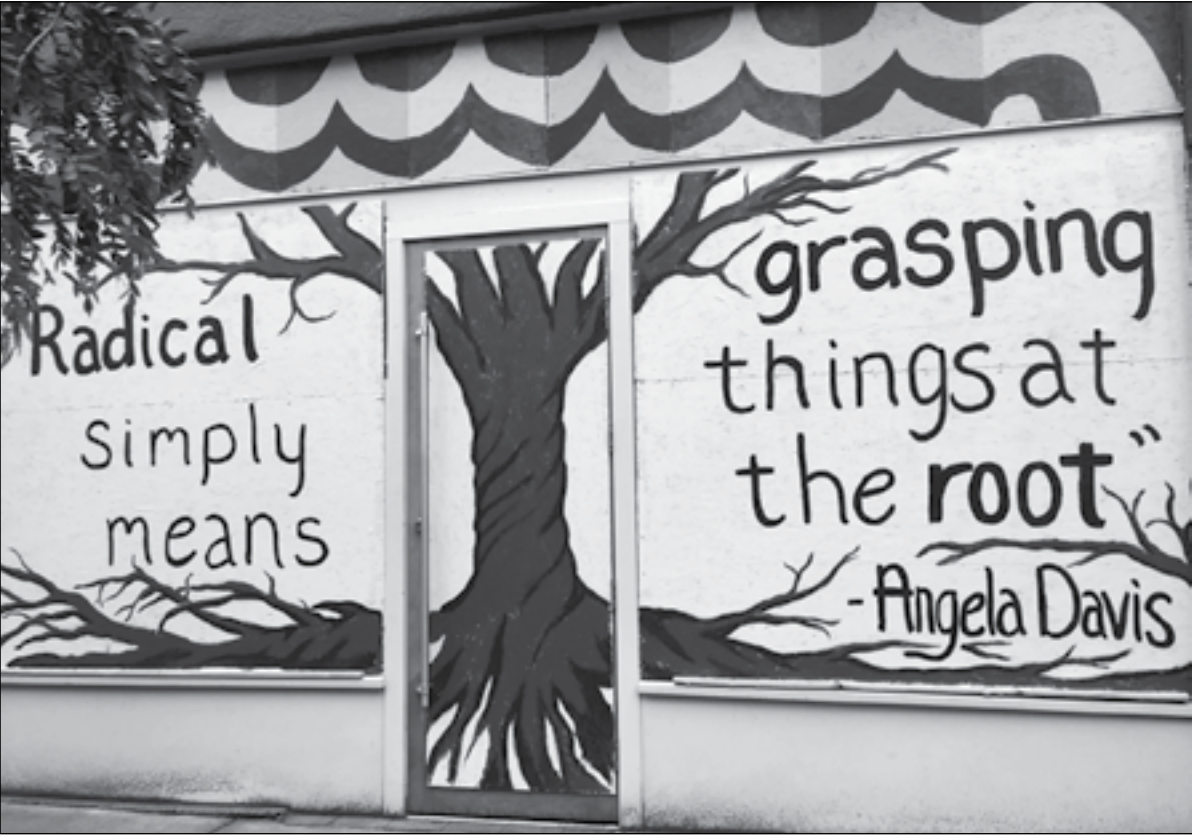 Radical
simply
means
grasping
things at
the root”
-Angela Davis